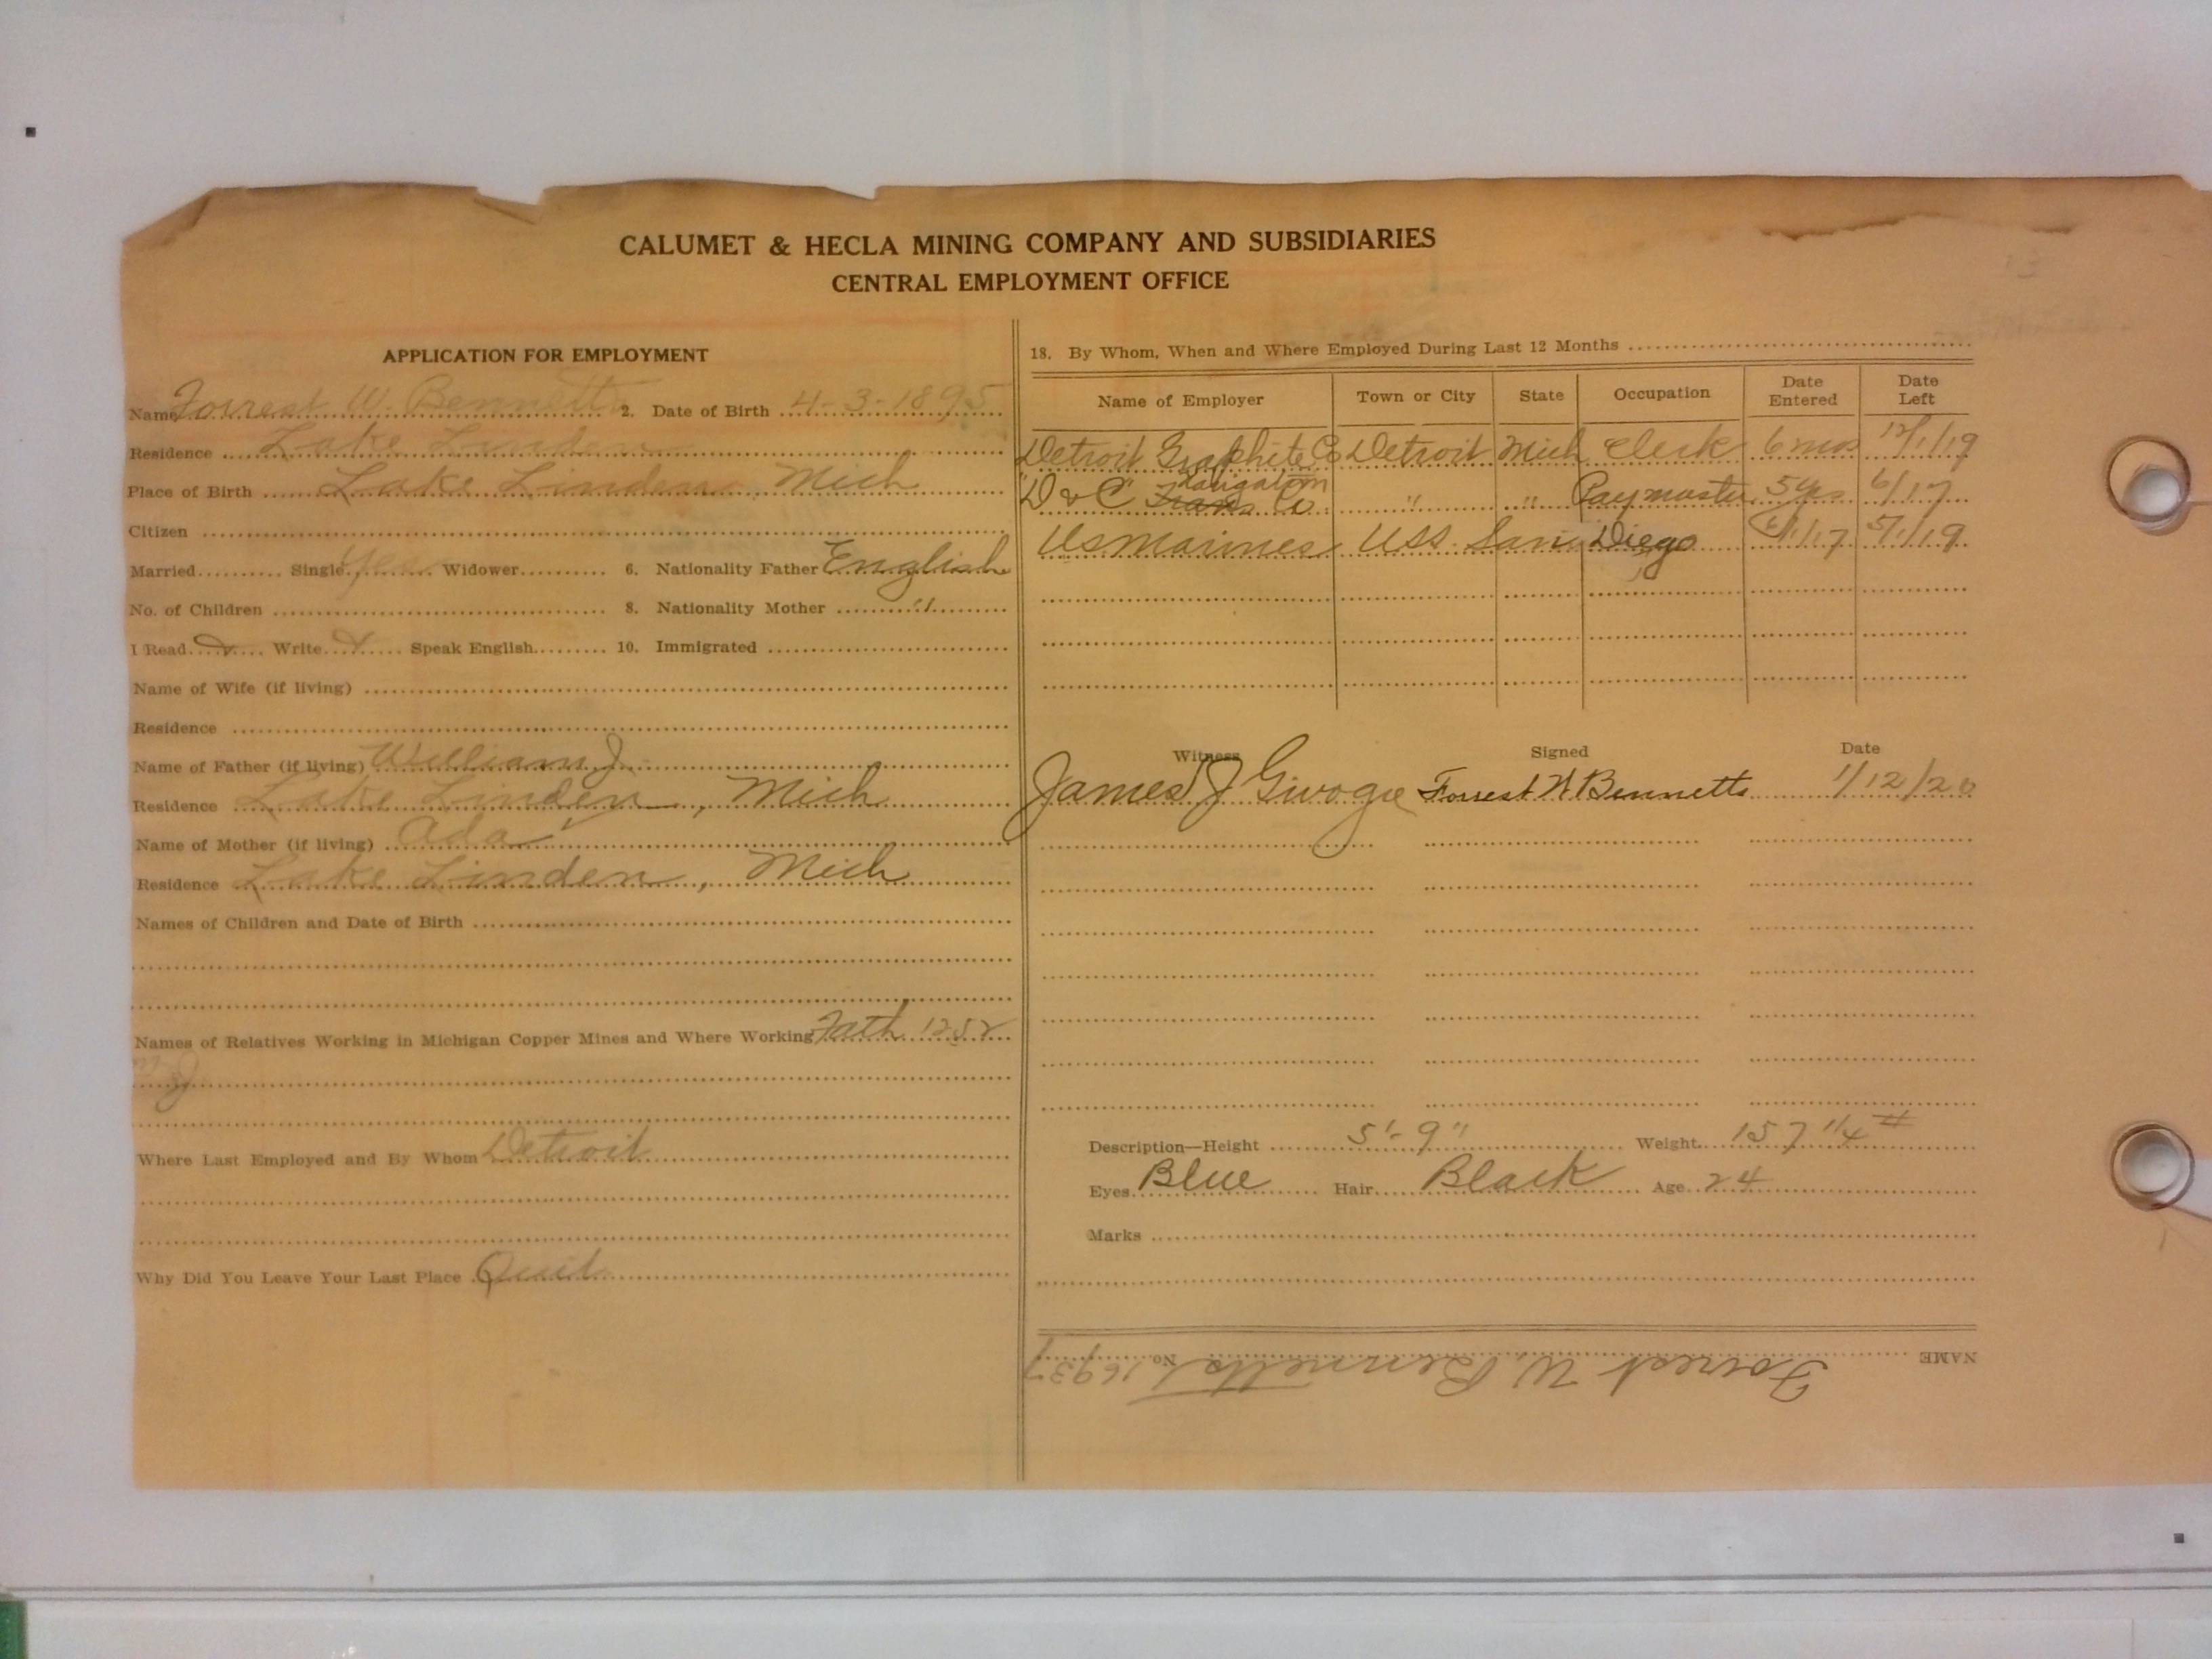 CALUMET & HECLA MINING COMPANY AND SUBSIDIARIES
CENTRAL EMPLOYMENT OFFICE
APPLICATION FOR EMPLOYMENT
Name Forrest W. Bennetts 2. Date of Birth 4-3-1895
Residence Lake Linden
Place of Birth Lake Linden Mich
Citizen
Married Single Yes Widower 6. Nationality Father English
No. of Children 8. Nationality Mother "
I Read Write Speak English 10. Immigrated
Name of Wife (if living)
Residence
Name of Father (if living) William J.
Residence Lake Linden, Mich
Name of Mother (if living) Ada
Residence Lake Linden, Mich
Names of Children and Date of Birth
Names of Relatives Working in Michigan Copper Mines and Where Working Fath 1252
Where Last Employed and By Whom Detroit
Why Did You Leave Your Last Place Quit
18. By Whom, When and Where Employed During Last 12 Months
Name of Employer Town or City State Occupation Date Entered Date Left
Detroit Graphite Co Detroit Mich Clerk 6 mos 12/1/19
"D & C" Trans Navigation Co " " Paymaster 5 yrs 6/17
US Marines USS San Diego 6/1/17 5/1/19
Witness Signed Date
James J Forrest W Bennetts 1/12/20
Description—Height 5'-9" Weight 157 1/4 #
Eyes Blue Hair Black Age 24
Marks
NAME Forrest W. Bennetts No. 16937